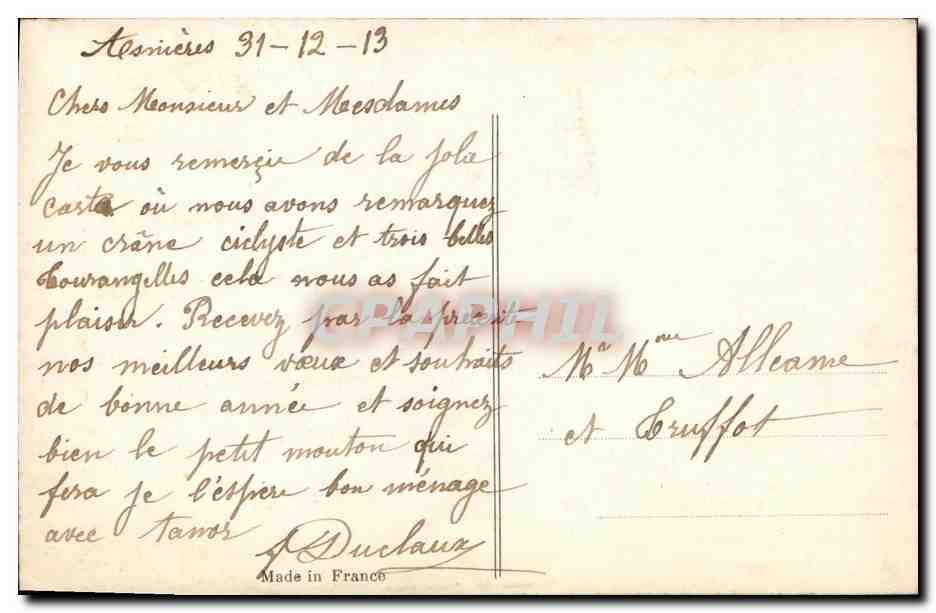 Asnières 31-12-13
Chers Monsieur et Mesdames
Je vous remerçie de la jolie
carte où nous avons remarquez
un crâne ciclyste et trois belles
tourangelles cela nous as fait
plaisir. Recevez par la présente
nos meilleurs vœux et souhaits
de bonne année et soignez
bien le petit mouton qui
fera je l'éspère bon ménage
avec
Duclaux
Made in France
CPAPHIL
Mr Mme Alleame
et Truffot